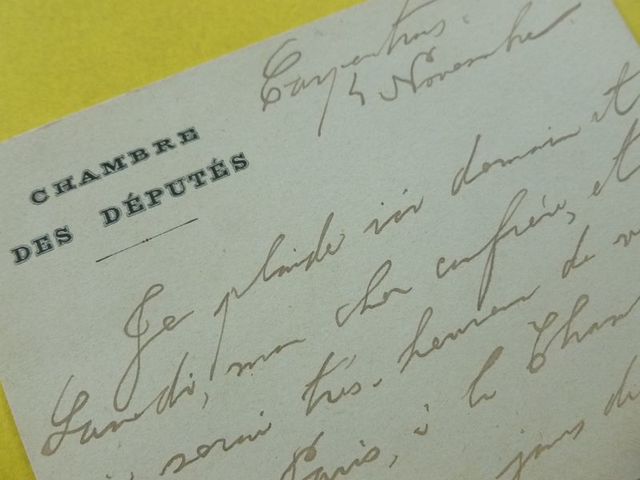 CHAMBRE
DES DÉPUTÉS
Carpentras.
4 Novembre.
Je plaide ici demain et
Lundi, mon cher confrère, et
serai très-heureux de
Paris, à la
jours